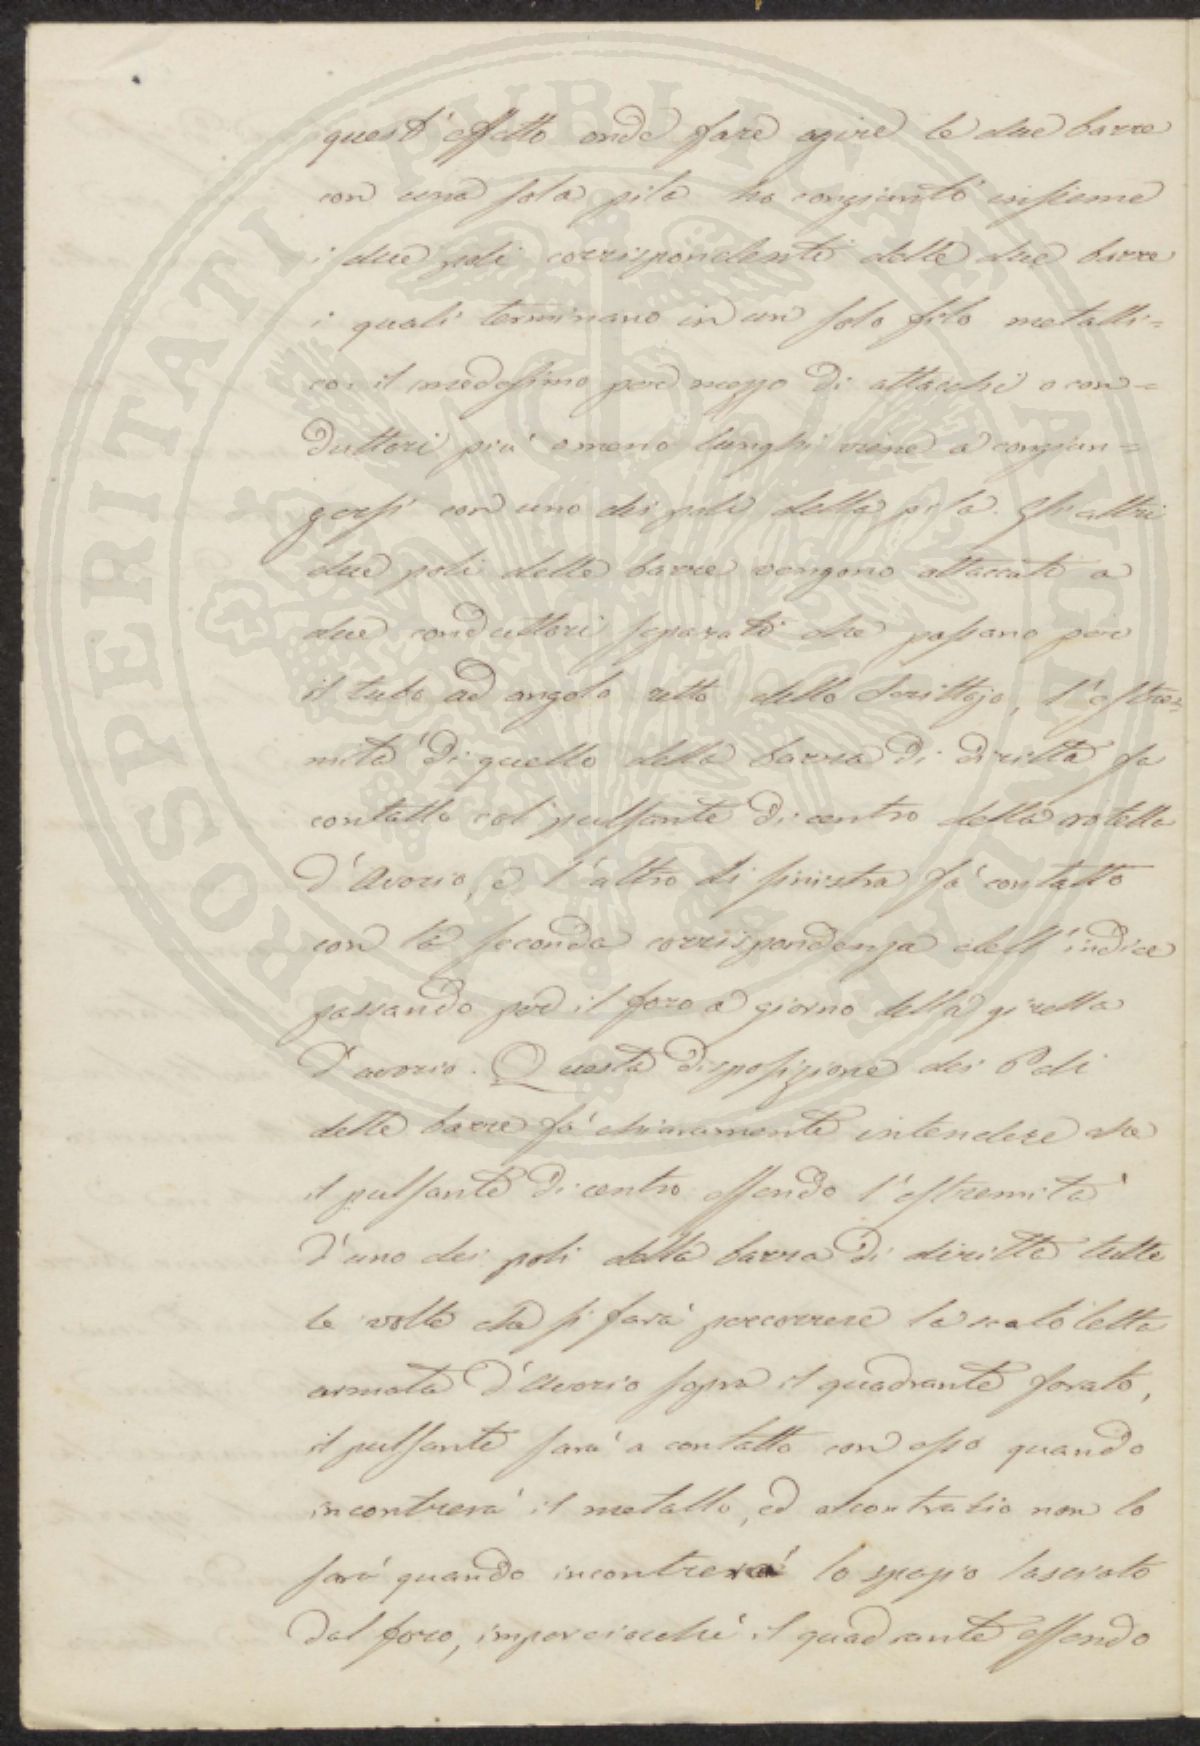 quest'effetto onde fare agire le due barre
con una sola pila ha congiunto insieme
i due poli corrispondenti delle due barre
i quali terminano in un solo filo metalli=
co: il medesimo per mezzo di attacchi o con=
duttori più o meno lunghi viene a congiun=
gersi con uno dei poli della pila. Gli altri
due poli delle barre vengono attaccati a
due conduttori separati che passano per
il tubo ad angolo retto dello Scrittojo, l'estre=
mità di quello della barra di diritta fa
contatto col pulsante di centro della rotella
d'Avorio, e l'altro di sinistra fa' contatto
con la seconda corrispondenza dell'indice
passando per il foro a giorno della girella
d'avorio. Questa disposizione dei Poli
delle barre fa' chiaramente intendere che
il pulsante di centro essendo l'estremità
d'uno dei poli della barra di diritta tutte
le volte che si farà percorrere la
armata d'Avorio sopra il quadrante forato,
il pulsante sarà a contatto con esso quando
incontrerà il metallo, ed al contrario non lo
sarà quando incontrerà lo spazio lasciato
dal foro, imperciocché il quadrante essendo
PROSPERITATI PUBLICAE AUGENDAE